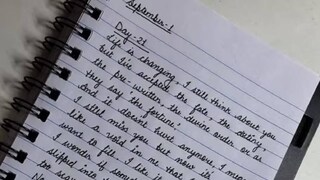 September-1
Day-21
Life is changing, I still think about you
but I've accepted the fate, the destiny,
the pre-written, the divine order or as
they say the fortune.
And it doesn't hurt anymore, I mean
I still miss you but now it's
like a void in me that I
want to fill. I like it
I wonder if some
slipped into
to sea
No